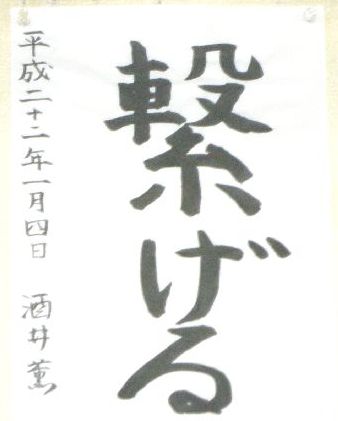 繋げる
平成二十二年一月四日 酒井薫